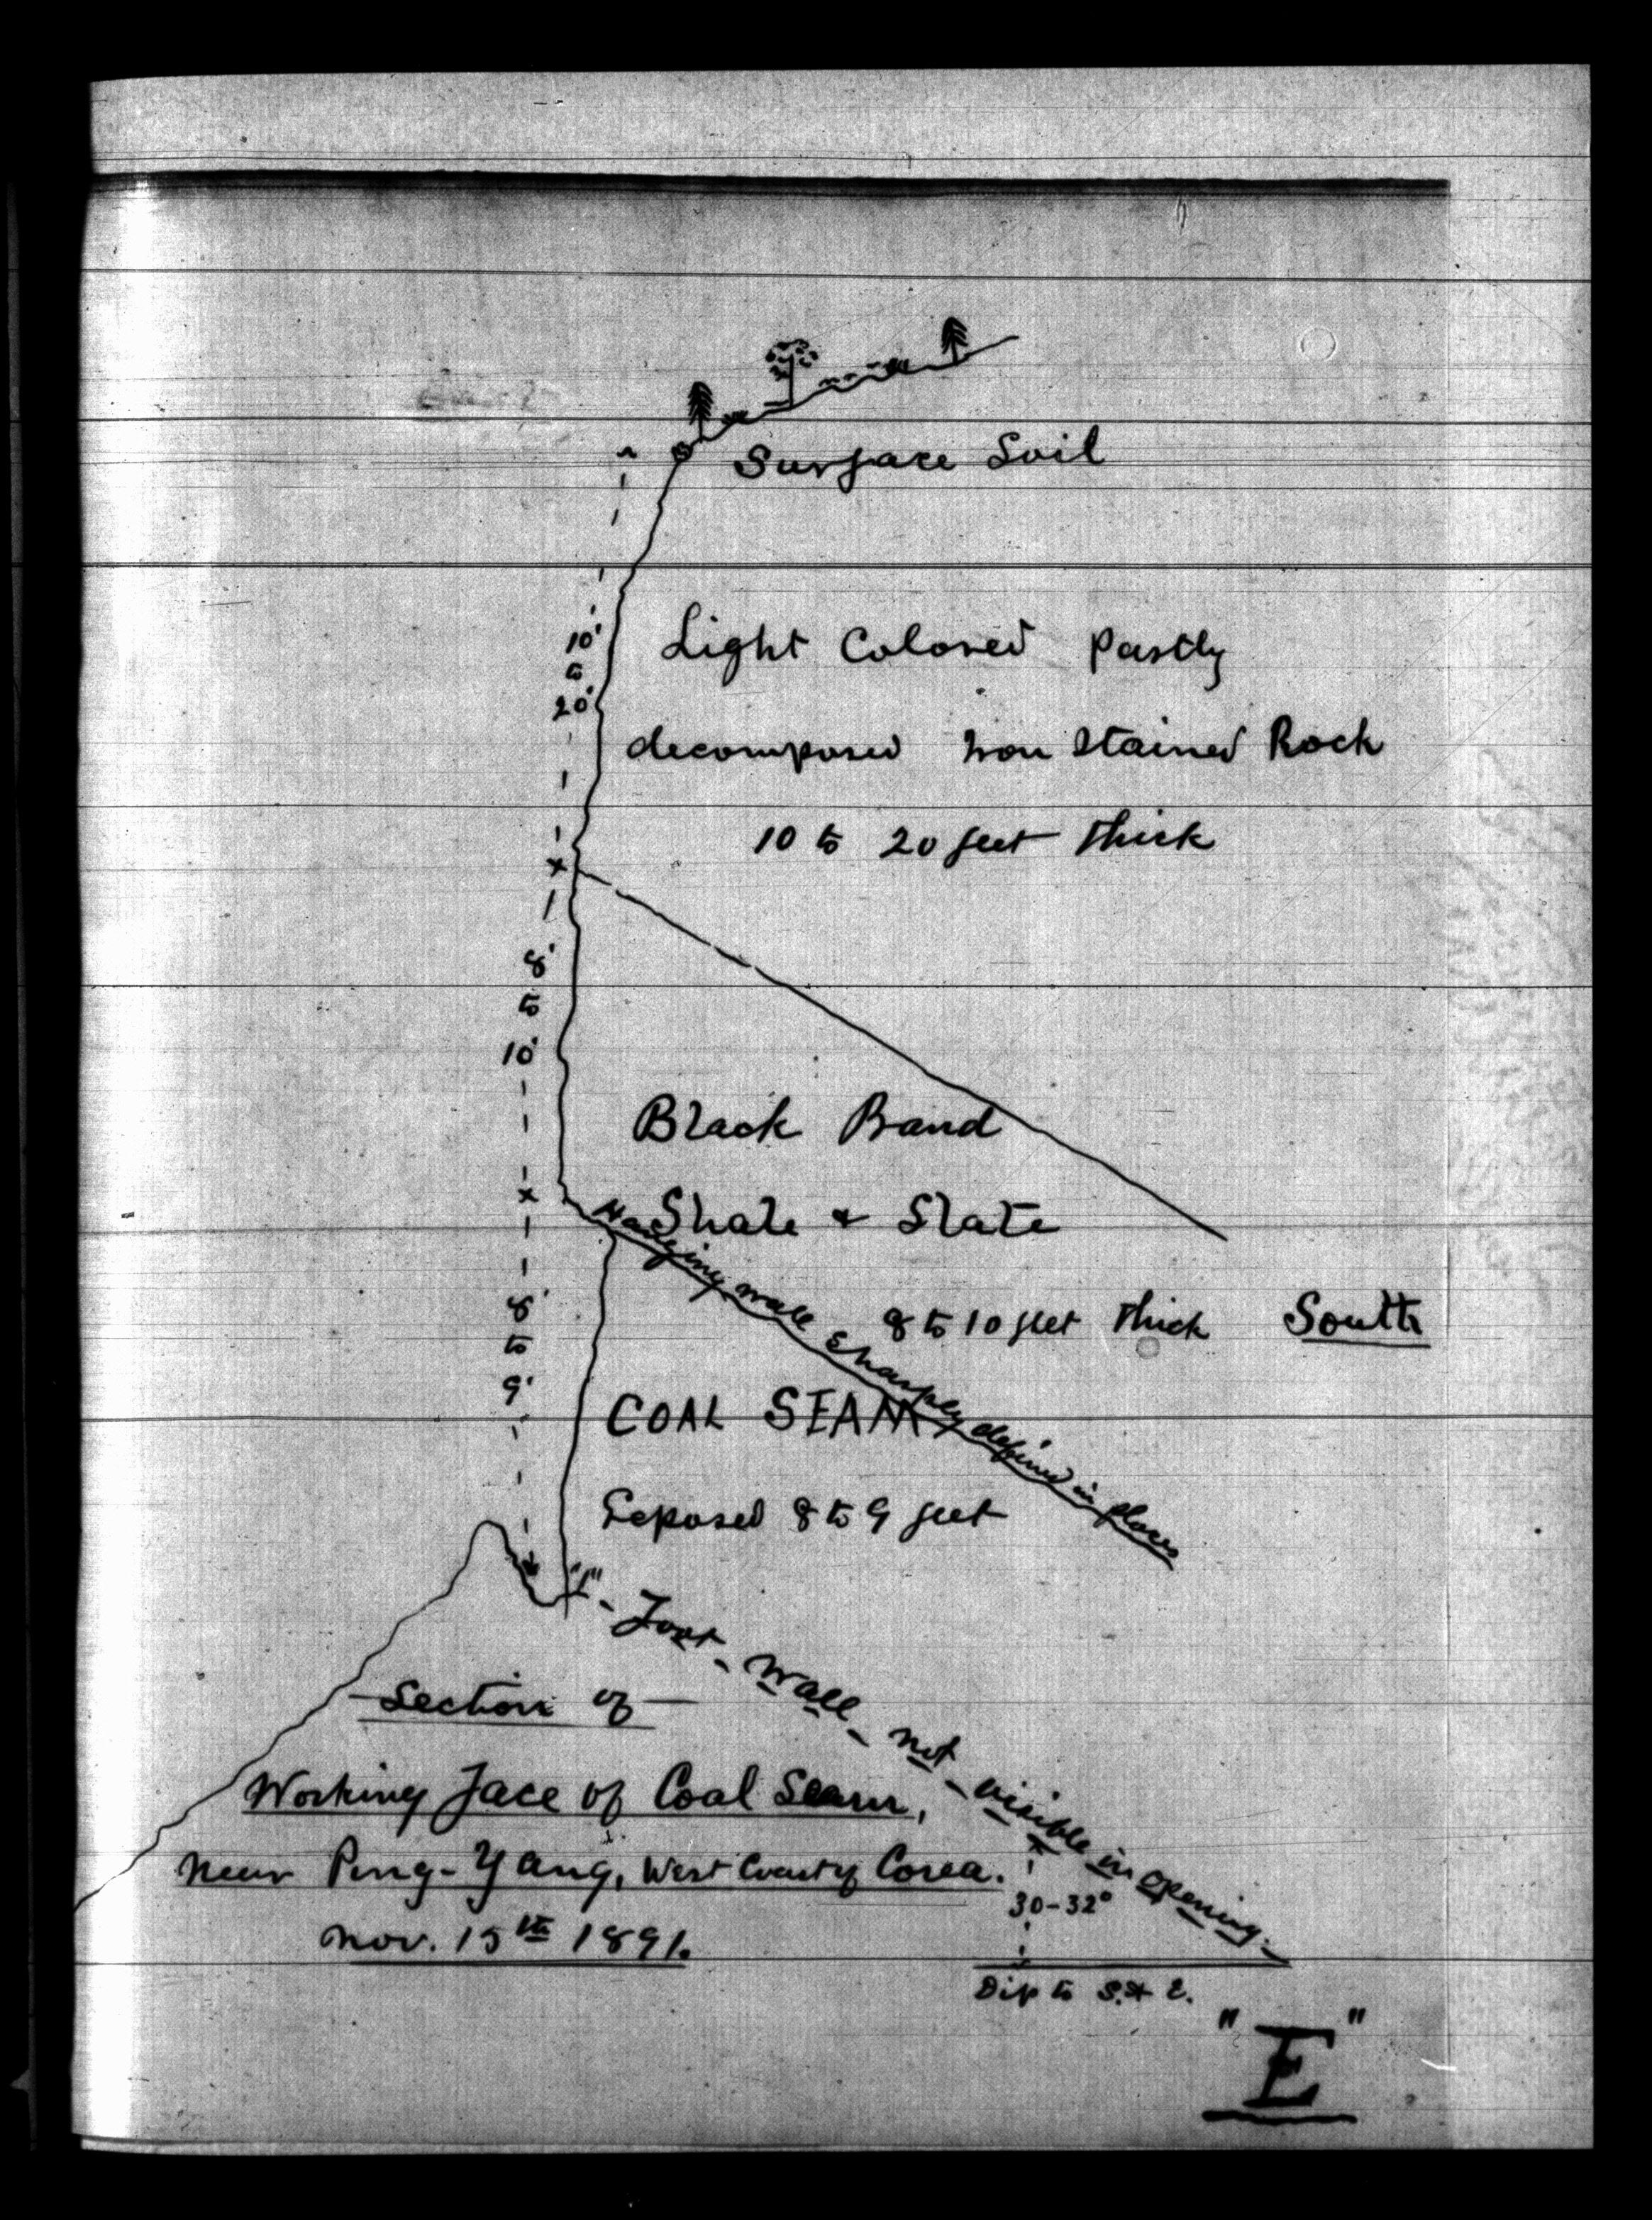 Surface Soil
10'
to
20'
Light Colored Partly
decomposed Iron Stained Rock
10 to 20 feet thick
8'
to
10'
Black Band
Shale & Slate
8 to 10 feet thick
South
Hanging wall sharply defined in places
8'
to
9'
COAL SEAM
Exposed 8 to 9 feet
Foot-wall-not-visible in opening.
Section of
Working Face of Coal Seam,
near Ping-Yang, West Coast of Corea.
Nov. 15th 1891.
30-32°
Dip to S. & E.
"E"